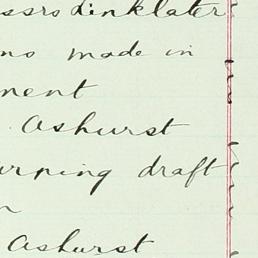 ssrs Linklater
ns made in
ment
. Ashurst
urning draft
Ashurst